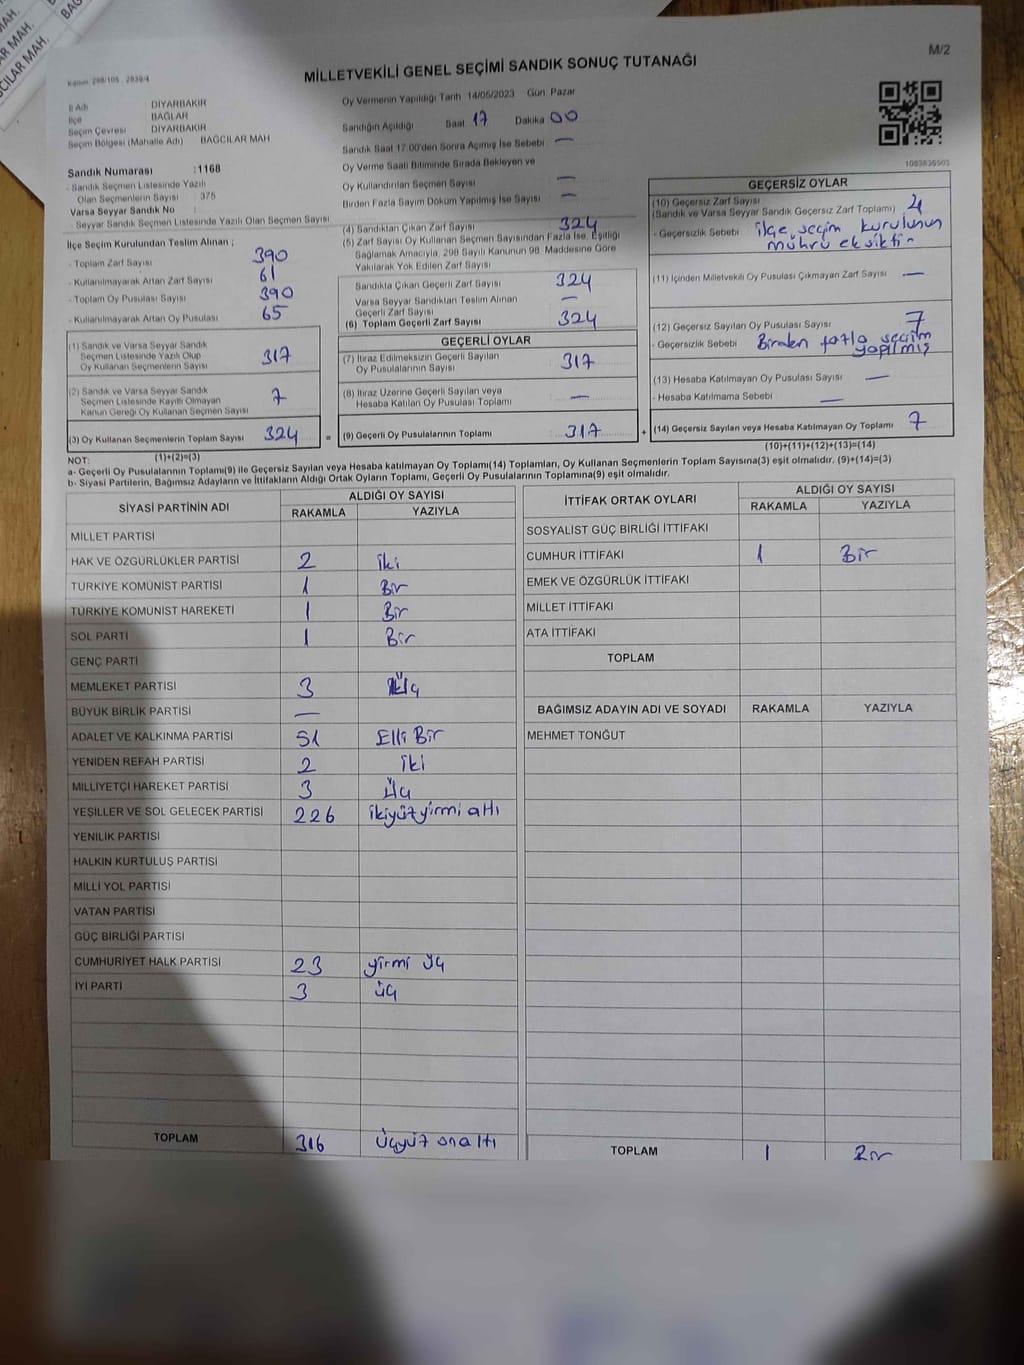 M/2
MİLLETVEKİLİ GENEL SEÇİMİ SANDIK SONUÇ TUTANAĞI
İl Adı : DİYARBAKIR
İlçe : BAĞLAR
Seçim Çevresi : DİYARBAKIR
Seçim Bölgesi (Mahalle Adı) BAGCILAR MAH
Oy Vermenin Yapıldığı Tarih 14/05/2023 Gün Pazar
Sandığın Açıldığı Saat 17 Dakika 00
Sandık Saat 17.00'den Sonra Açımış İse Sebebi —
Oy Verme Saati Bitiminde Sırada Bekleyen ve
Oy Kullandırılan Seçmen Sayısı —
Birden Fazla Sayım Döküm Yapılmış İse Sayısı —
Sandık Numarası :1168
- Sandık Seçmen Listesinde Yazılı
Olan Seçmenlerin Sayısı : 375
Varsa Seyyar Sandık No :
- Seyyar Sandık Seçmen Listesinde Yazılı Olan Seçmen Sayısı
İlçe Seçim Kurulundan Teslim Alınan ;
- Toplam Zarf Sayısı 390
- Kullanılmayarak Artan Zarf Sayısı 61
- Toplam Oy Pusulası Sayısı 390
- Kullanılmayarak Artan Oy Pusulası 65
(1) Sandık ve Varsa Seyyar Sandık
Seçmen Listesinde Yazılı Olup
Oy Kullanan Seçmenlerin Sayısı 317
(2) Sandık ve Varsa Seyyar Sandık
Seçmen Listesinde Kayıtlı Olmayan
Kanun Gereği Oy Kullanan Seçmen Sayısı 7
(3) Oy Kullanan Seçmenlerin Toplam Sayısı 324 =
(1)+(2)=(3)
(4) Sandıktan Çıkan Zarf Sayısı 324
(5) Zarf Sayısı Oy Kullanan Seçmen Sayısından Fazla İse, Eşitliği
Sağlamak Amacıyla, 298 Sayılı Kanunun 98. Maddesine Göre
Yakılarak Yok Edilen Zarf Sayısı
Sandıkta Çıkan Geçerli Zarf Sayısı 324
Varsa Seyyar Sandıktan Teslim Alınan
Geçerli Zarf Sayısı —
(6) Toplam Geçerli Zarf Sayısı 324
GEÇERLİ OYLAR
(7) İtiraz Edilmeksizin Geçerli Sayılan
Oy Pusulalarının Sayısı 317
(8) İtiraz Üzerine Geçerli Sayılan veya
Hesaba Katılan Oy Pusulası Toplamı —
(9) Geçerli Oy Pusulalarının Toplamı 317 +
1083836503
GEÇERSİZ OYLAR
(10) Geçersiz Zarf Sayısı
(Sandık ve Varsa Seyyar Sandık Geçersiz Zarf Toplamı) 4
- Geçersizlik Sebebi ilçe seçim kurulunun
mührü eksiktir
(11) İçinden Milletvekili Oy Pusulası Çıkmayan Zarf Sayısı —
(12) Geçersiz Sayılan Oy Pusulası Sayısı 7
- Geçersizlik Sebebi Birden fazla seçim
yapılmış
(13) Hesaba Katılmayan Oy Pusulası Sayısı —
- Hesaba Katılmama Sebebi —
(14) Geçersiz Sayılan veya Hesaba Katılmayan Oy Toplamı 7
(10)+(11)+(12)+(13)=(14)
NOT:
a- Geçerli Oy Pusulalarının Toplamı(9) ile Geçersiz Sayılan veya Hesaba katılmayan Oy Toplamı(14) Toplamları, Oy Kullanan Seçmenlerin Toplam Sayısına(3) eşit olmalıdır. (9)+(14)=(3)
b- Siyasi Partilerin, Bağımsız Adayların ve İttifakların Aldığı Ortak Oyların Toplamı, Geçerli Oy Pusulalarının Toplamına(9) eşit olmalıdır.
SİYASİ PARTİNİN ADI ALDIĞI OY SAYISI
RAKAMLA YAZIYLA
MİLLET PARTİSİ
HAK VE ÖZGÜRLÜKLER PARTİSİ 2 iki
TÜRKİYE KOMÜNİST PARTİSİ 1 Bir
TÜRKİYE KOMÜNİST HAREKETİ 1 Bir
SOL PARTİ 1 Bir
GENÇ PARTİ
MEMLEKET PARTİSİ 3 Üç
BÜYÜK BİRLİK PARTİSİ —
ADALET VE KALKINMA PARTİSİ 51 Elli Bir
YENİDEN REFAH PARTİSİ 2 iki
MİLLİYETÇİ HAREKET PARTİSİ 3 Üç
YEŞİLLER VE SOL GELECEK PARTİSİ 226 ikiyüzyirmi altı
YENİLİK PARTİSİ
HALKIN KURTULUŞ PARTİSİ
MİLLİ YOL PARTİSİ
VATAN PARTİSİ
GÜÇ BİRLİĞİ PARTİSİ
CUMHURİYET HALK PARTİSİ 23 yirmi üç
İYİ PARTİ 3 üç
TOPLAM 316 üçyüz onaltı
İTTİFAK ORTAK OYLARI ALDIĞI OY SAYISI
RAKAMLA YAZIYLA
SOSYALİST GÜÇ BİRLİĞİ İTTİFAKI
CUMHUR İTTİFAKI 1 Bir
EMEK VE ÖZGÜRLÜK İTTİFAKI
MİLLET İTTİFAKI
ATA İTTİFAKI
TOPLAM
BAĞIMSIZ ADAYIN ADI VE SOYADI RAKAMLA YAZIYLA
MEHMET TONĞUT
TOPLAM 1 Bir